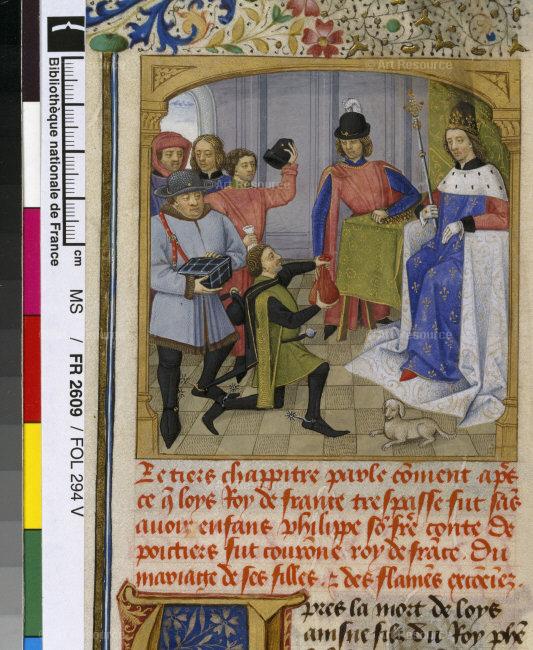 Bibliothèque nationale de France
cm
MS / FR 2609 / FOL 294 V
© Art Resource
© Art Resource
© Art Resource
© Art Resource
Le tiers chappitre parle coment apṛs
ce q̄ loys Roy de france trespasse fut sās
auoir enfans philippe sō frē conte de
poictiers fut couronne roy de frāce. Du
mariaige de ses filles. & des flamēs excōīez.
Apres la mort de loys
aisne filz du Roy phē